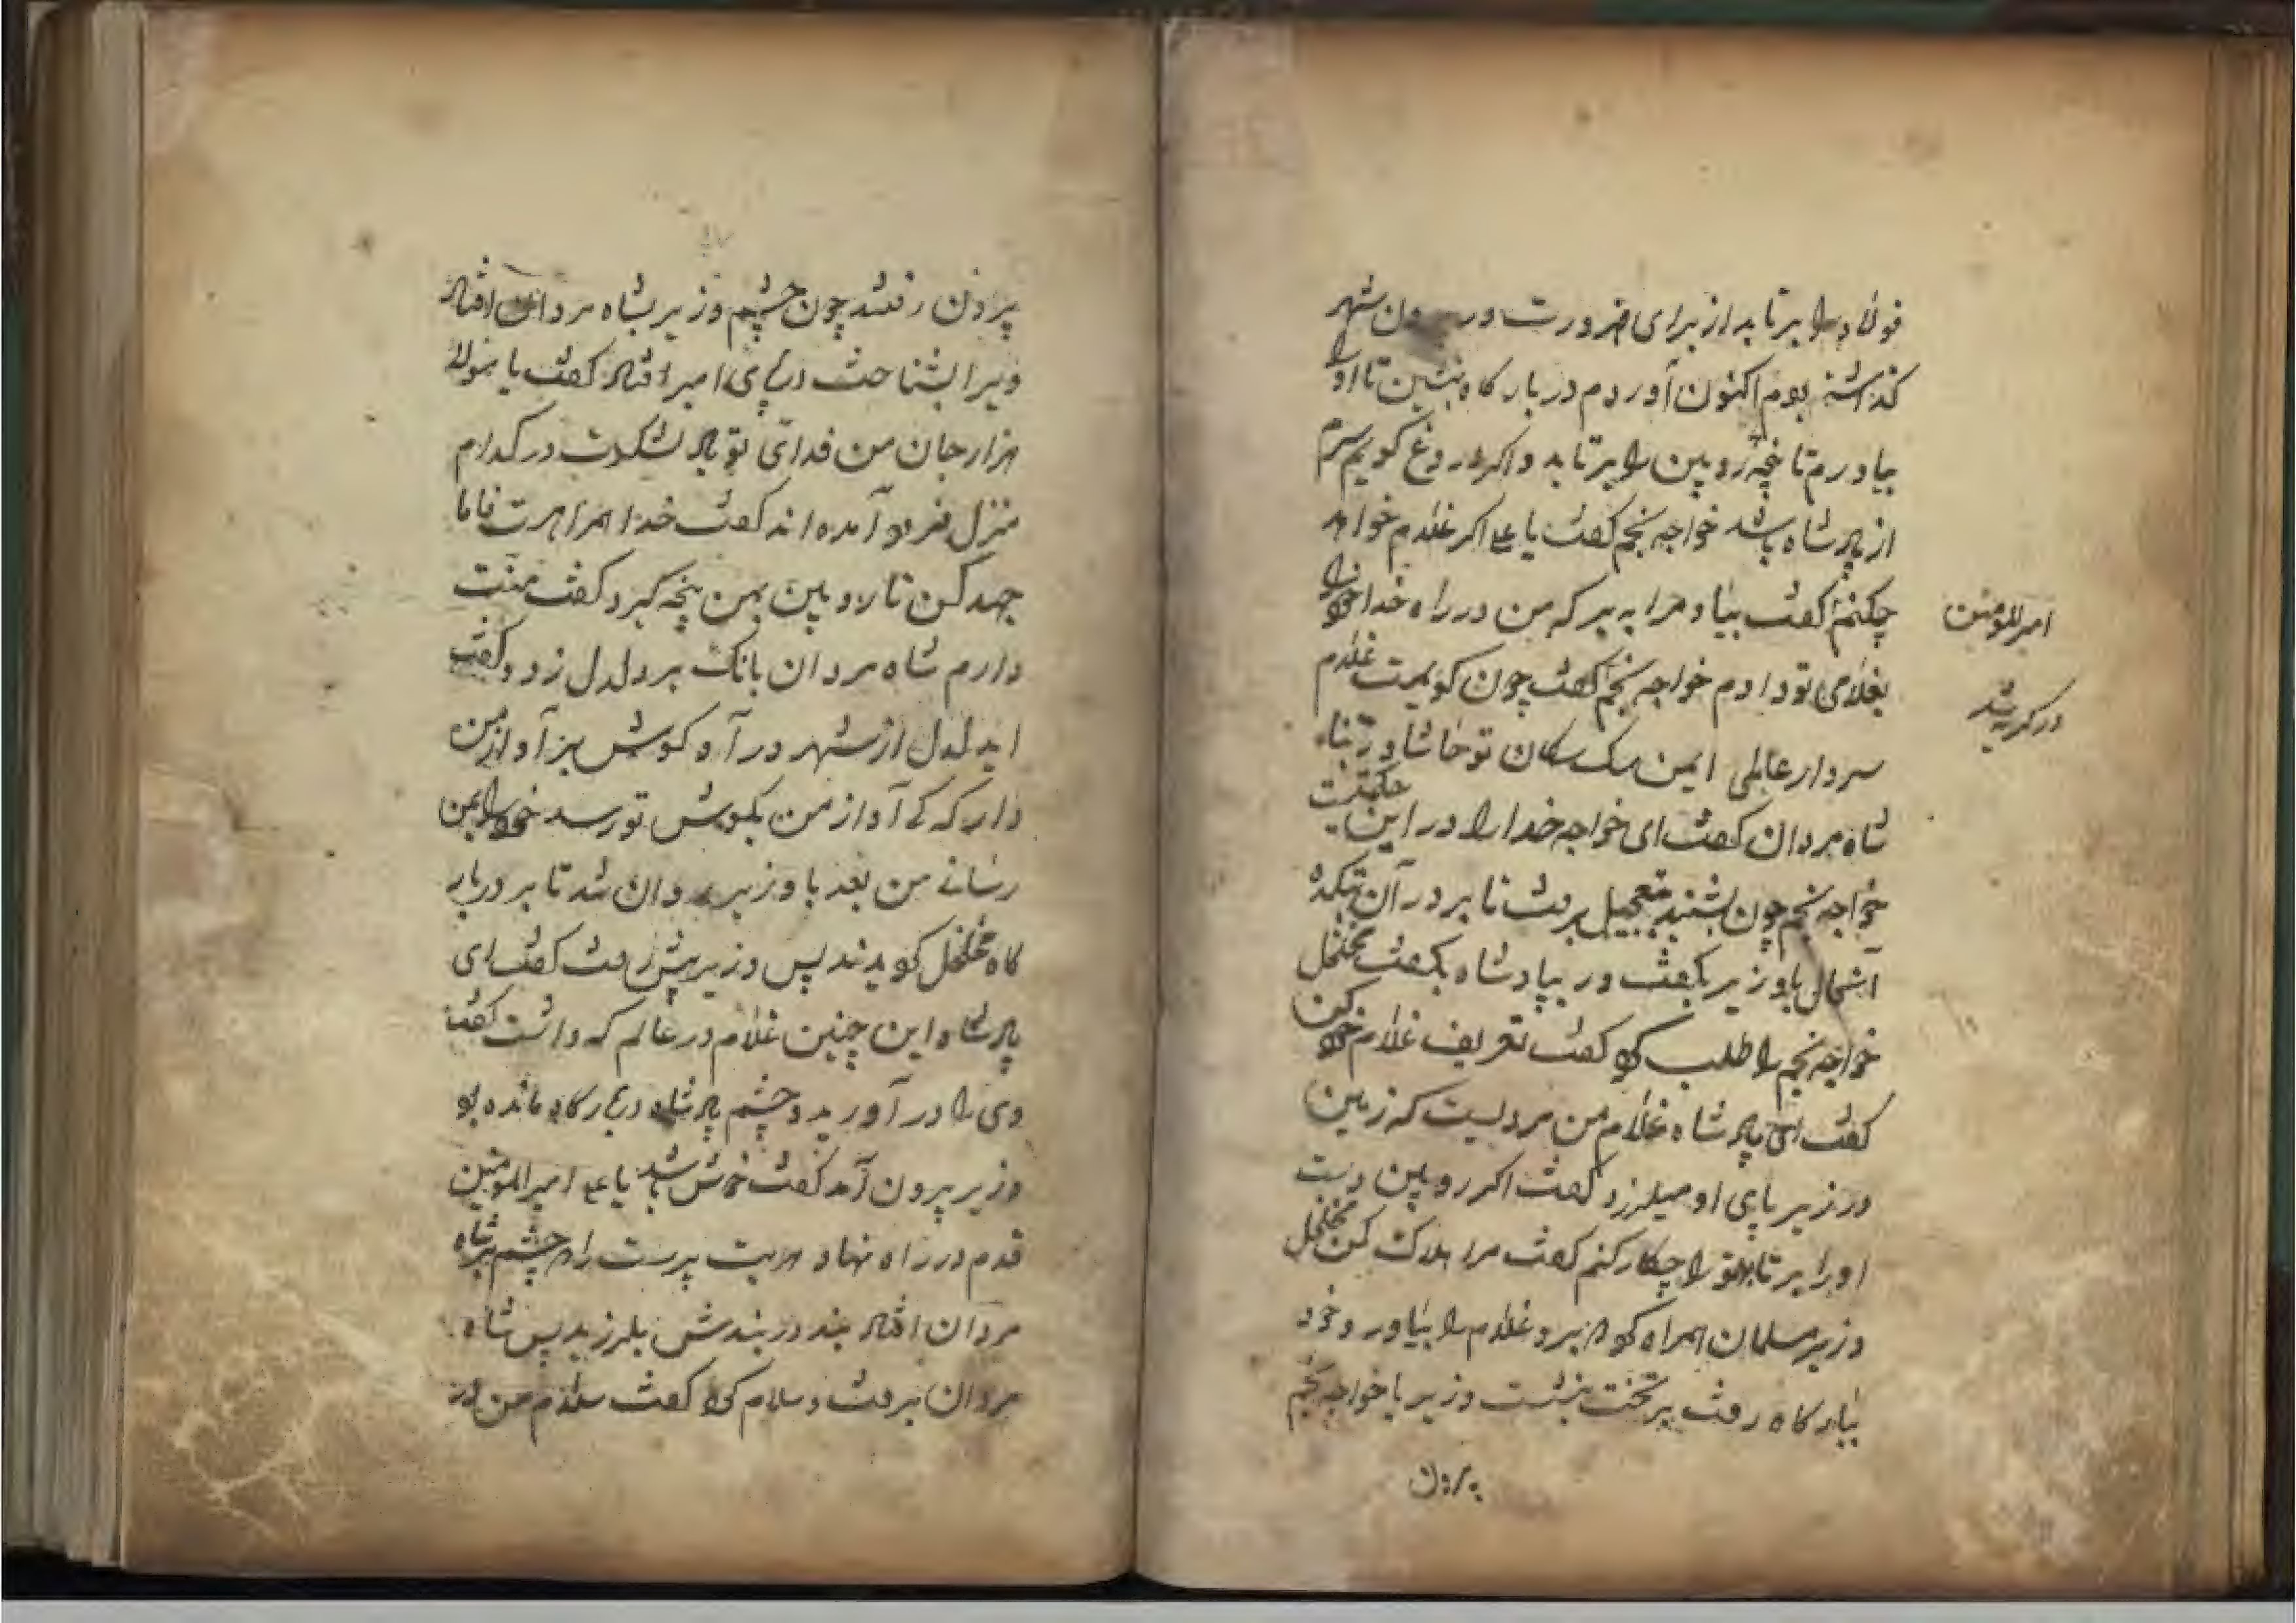 فولاد را برتابد از برای ضرورت در بیرون شهر
گذاشته بودم اکنون آوردم در بارکاه بنشین تا او را
بیاورم تا پنجه روبین را برتابد و اکر دروغ کویم سرم
از پادشاه باشد خواجه نجم کفت یا علی اکر غلام خواهد
چکنم کفت بیا و مرا ببر که من در راه خدا خود را
امیرالمومنین
بغلامی تو دادم خواجه نجم کفت چون کویمت غلام
در کریه شد
سردار عالمی ایمن سک سکان تو حاشا
شاه مردان کفت ای خواجه خدا را در این حکمتیست
خواجه نجم چون بشنید بتعجیل برفت تا بر در آن بتکده
آشمال با وزیر بکفت وزیر بپادشاه بکفت مخلخل
خواجه نجم را طلب کرد کفت تعریف غلام خود کن
کفت ای پادشاه غلام من مردیست که زمین
در زیر پای او میلرزد کفت اکر روبین دست
او را برتابد تو را چکار کنم کفت مرا هلاک کن مخلخل
وزیر مسلمان همراه کرد که برو غلام را بیاور و خود
ببارکاه رفت بر تخت بنشست وزیر با خواجه نجم
بیرون
بیرون رفتند چون چشم وزیر بشاه مردان افتاد
ویرا بشناخت در پای امیر افتاد کفت یا مولا
هزار جان من فدای تو باد لشکرت در کدام
منزل فرود آمده اند کفت خدا همراهست فاما
جهد کن تا روبین بمن پنجه کیرد کفت منت
دارم شاه مردان بانک بر دلدل زد و کفت
ای دلدل از شهر در آ و کوش بر آواز من
دار که کی آواز من بکوش تو رسد خود را بمن
رسانی من بعد با وزیر روان شد تا بر دربار
کاه مخلخل کویدند پس وزیر پیش رفت کفت ای
پادشاه این چنین غلام در عالم که داشت کفت
وی را در آورید و چشم پادشاه در بارکاه مانده بود
وزیر بیرون آمد کفت خوش باشد یا علی امیرالمومنین
قدم در راه نهاد هر بت پرست را که چشم بر شاه
مردان افتاد بند در بندش بلرزید پس شاه
مردان برفت و سلام کرد کفت سلام من بر